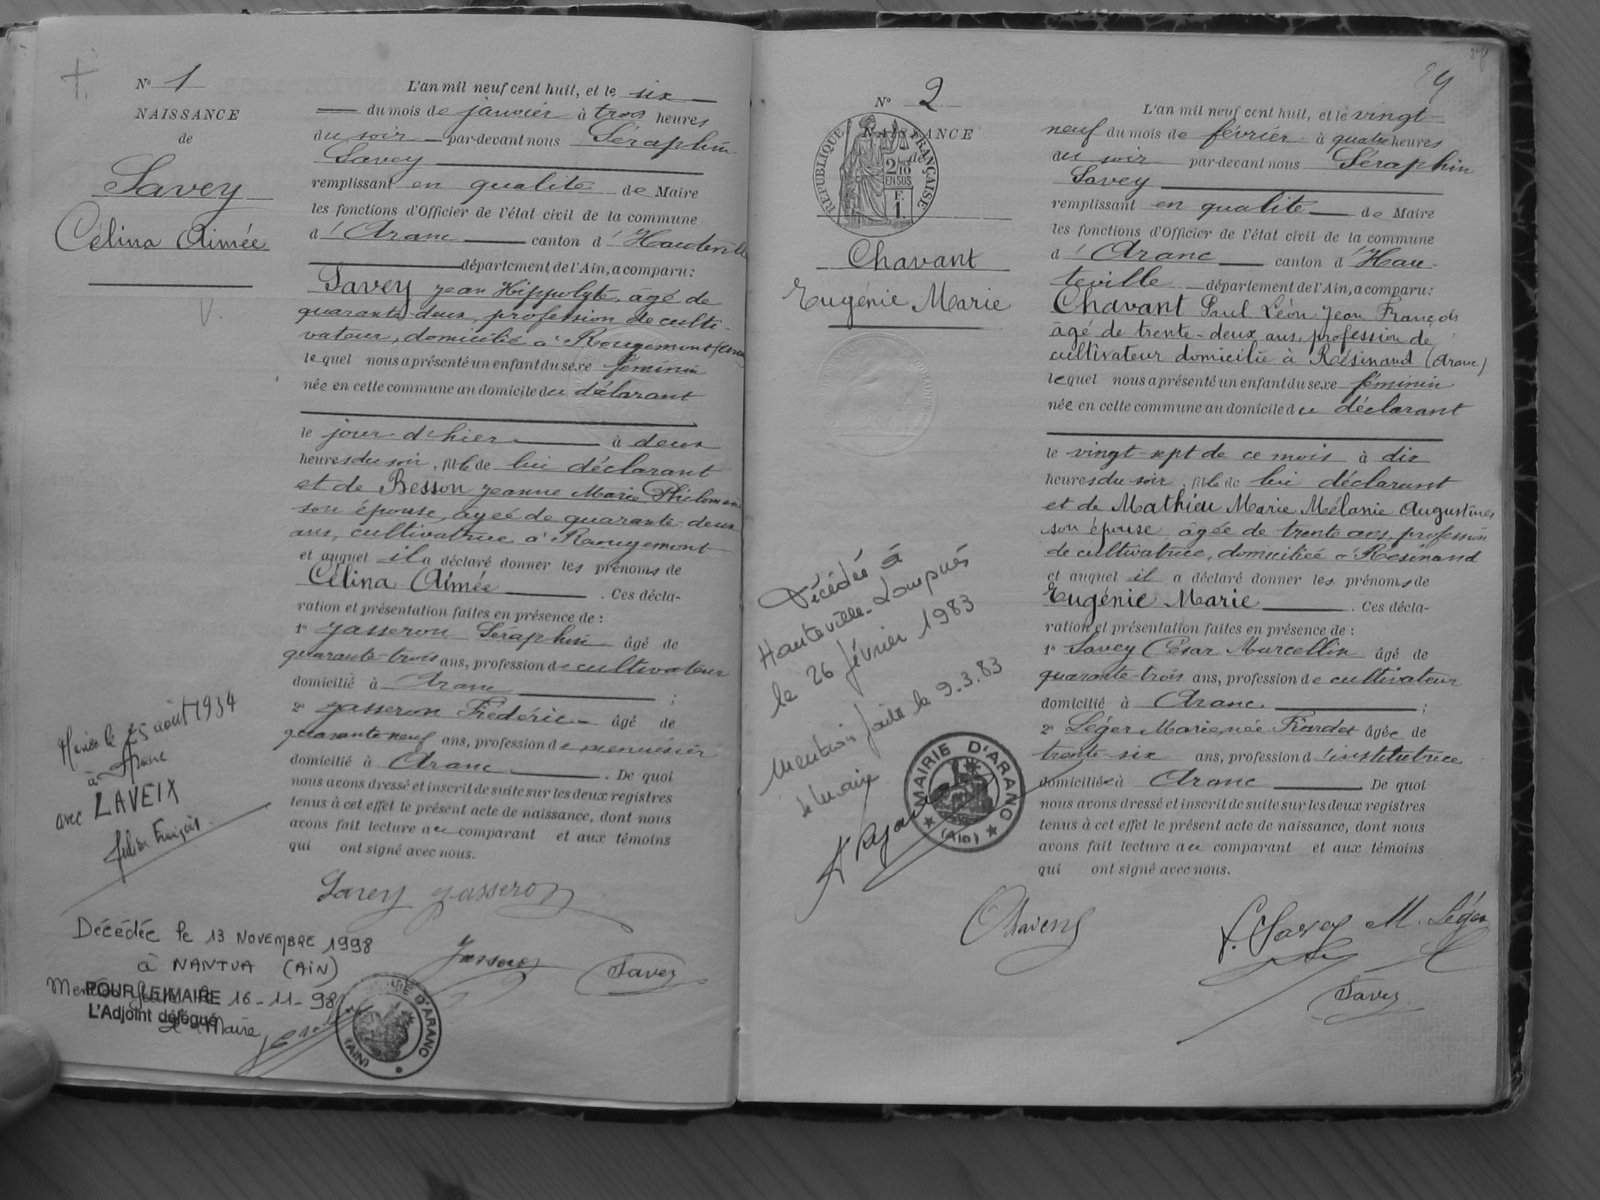 N° 1
NAISSANCE
de
Savey
Célina Aimée
L'an mil neuf cent huit, et le six
du mois de janvier à trois heures
du soir par-devant nous Séraphin
Savey
remplissant en qualité de Maire
les fonctions d'Officier de l'état civil de la commune
d'Aranc canton d'Hauteville
département de l'Ain, a comparu:
Savey Jean Hippolyte, âgé de
quarante-deux, profession de culti-
vateur, domicilié à Rougemont (Aranc
lequel nous a présenté un enfant du sexe féminin
née en cette commune au domicile du déclarant
le jour d'hier à deux
heures du soir, fille de lui déclarant
et de Besson Jeanne Marie Philomène
son épouse, âgée de quarante-deux
ans, cultivatrice à Rougemont
et auquel il a déclaré donner les prénoms de
Célina Aimée. Ces décla-
ration et présentation faites en présence de :
1° Jasseron Séraphin âgé de
quarante-trois ans, profession de cultivateur
domicilié à Aranc ;
2° Jasseron Frédéric âgé de
quarante-neuf ans, profession de menuisier
domicilié à Aranc. De quoi
nous avons dressé et inscrit de suite sur les deux registres
tenus à cet effet le présent acte de naissance, dont nous
avons fait lecture au comparant et aux témoins
qui ont signé avec nous.
Savey Jasseron
Jasseron Savey
Mariée le 25 août 1934
à Aranc
avec LAVEIX
Julien François
Décédée le 13 NOVEMBRE 1998
à NANTUA (AIN)
Mention faite le 16-11-98
POUR LE MAIRE
L'Adjoint délégué
Le Maire
MAIRIE D'ARANC
(AIN)
24
N° 2
NAISSANCE
de
RÉPUBLIQUE FRANÇAISE
2/10
EN SUS
F.
1.
Chavant
Eugénie Marie
L'an mil neuf cent huit, et le vingt-
neuf du mois de février à quatre heures
du soir par-devant nous Séraphin
Savey
remplissant en qualité de Maire
les fonctions d'Officier de l'état civil de la commune
d'Aranc canton d'Hau-
teville département de l'Ain, a comparu:
Chavant Paul Léon Jean François
âgé de trente-deux ans, profession de
cultivateur domicilié à Résinand (Aranc)
lequel nous a présenté un enfant du sexe féminin
née en cette commune au domicile du déclarant
le vingt-sept de ce mois à dix
heures du soir, fille de lui déclarant
et de Mathieu Marie Mélanie Augustine
son épouse âgée de trente ans, profession
de cultivatrice, domiciliée à Résinand
et auquel il a déclaré donner les prénoms de
Eugénie Marie. Ces décla-
ration et présentation faites en présence de :
1° Savey César Marcellin âgé de
quarante-trois ans, profession de cultivateur
domicilié à Aranc ;
2° Léger Marie née âgée de
trente-six ans, profession d'institutrice
domiciliée à Aranc De quoi
nous avons dressé et inscrit de suite sur les deux registres
tenus à cet effet le présent acte de naissance, dont nous
avons fait lecture au comparant et aux témoins
qui ont signé avec nous.
Chavent
Savey M. Léger
Savey
Décédée à
Hauteville-Lompnes
le 26 février 1983
Mention faite le 9.3.83
Le Maire
MAIRIE D'ARANC
(Ain)